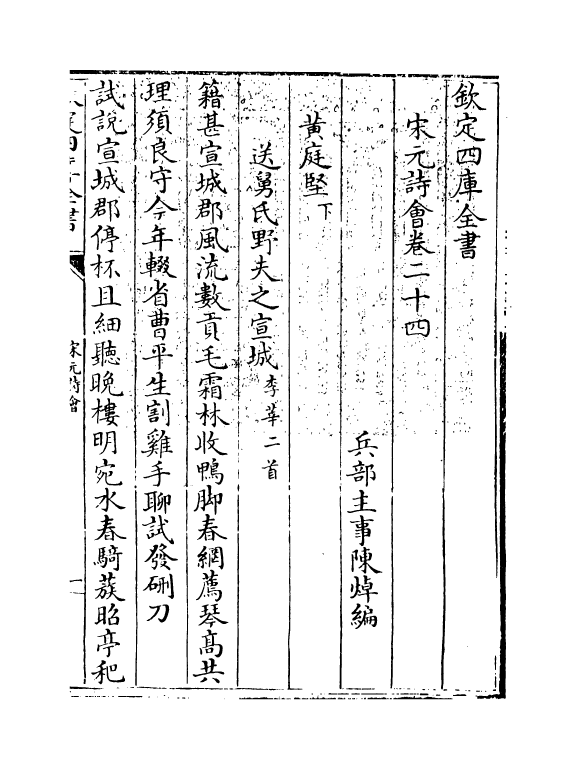 欽定四庫全書
宋元詩會卷二十四
兵部主事陳焯編
黃庭堅下
送舅氏野夫之宣城李莘二首
籍甚宣城郡風流數貢毛霜林收鴨脚春網薦琴髙共
理須良守今年輟省曹平生割雞手聊試發硎刀
試説宣城郡停杯且細聽晚樓明宛水春騎蔟昭亭䄻
宋元詩會
一